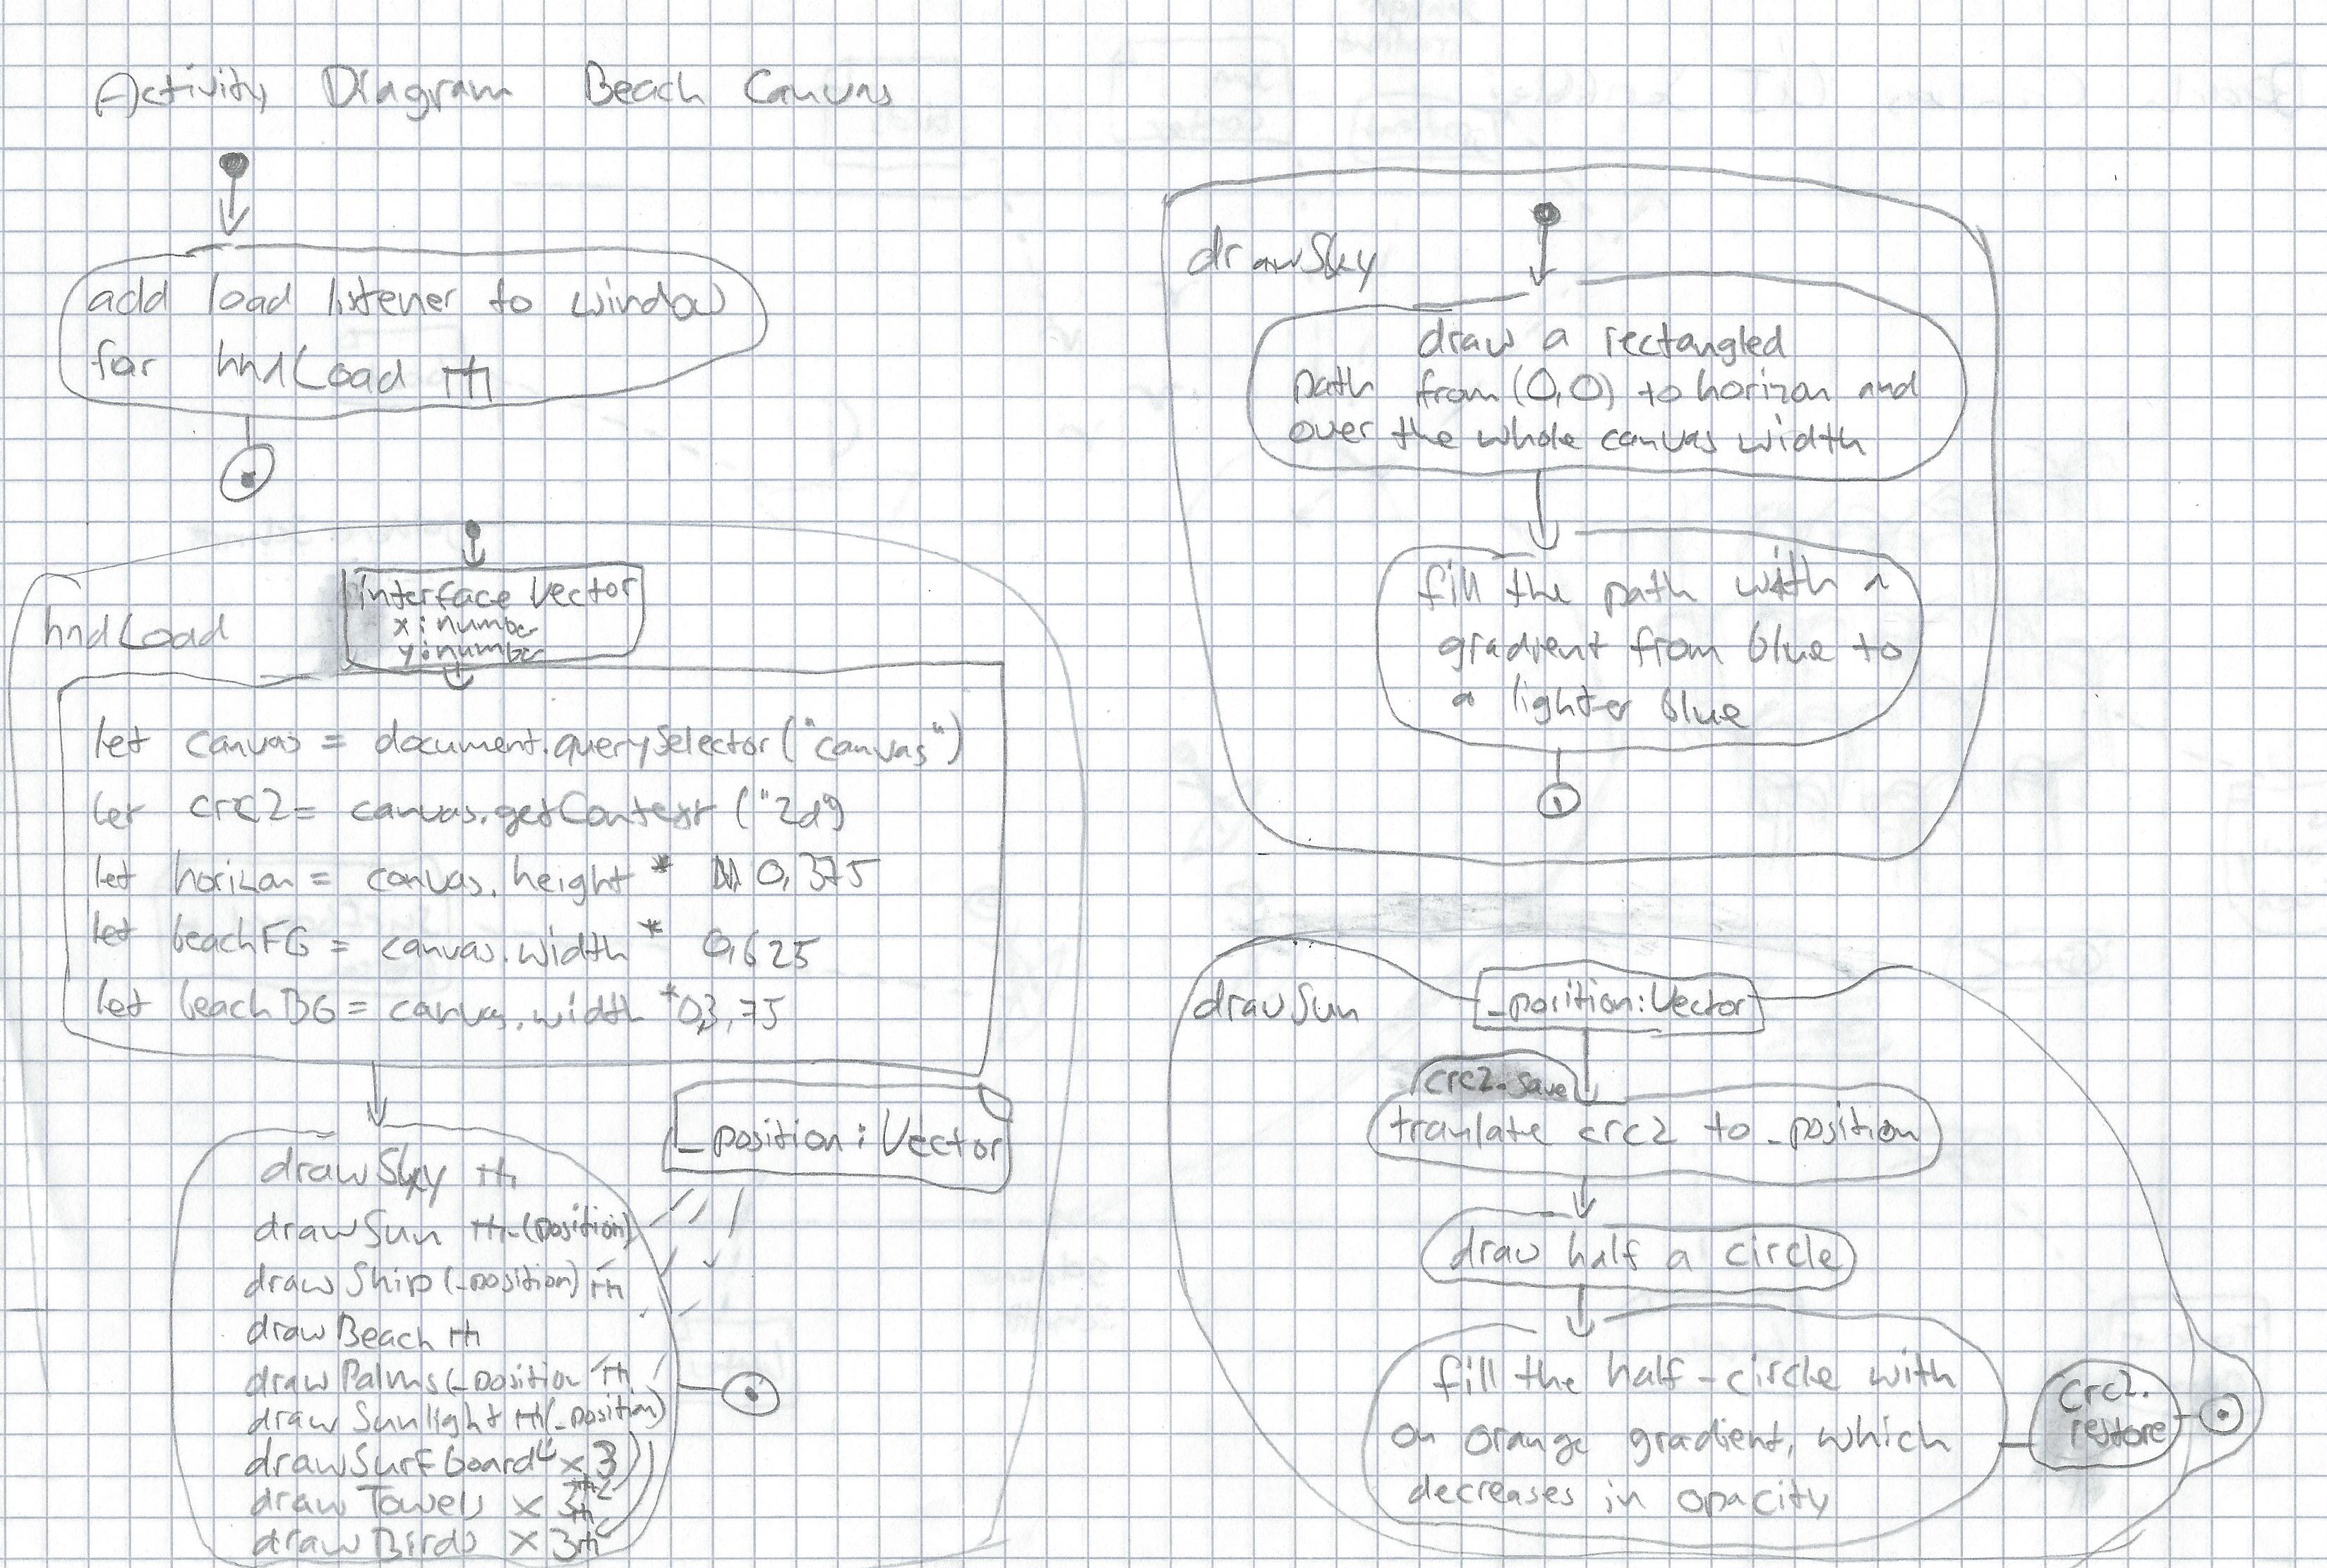 Activity Diagram Beach Canvas
add load listener to window
for hndLoad
hndLoad
interface Vector
x: number
y: number
let canvas = document.querySelector("canvas")
let crc2 = canvas.getContext ("2d")
let horizon = canvas.height * 0,375
let beachFG = canvas.width * 0,625
let beachBG = canvas.width *
_position: Vector
drawSky
drawSun (position)
drawShip (_position)
drawBeach
drawPalms (_position
drawSunlight (_position)
drawSurfboard x 3
drawTowels x 3
drawBirds x 3
drawSky
draw a rectangled
path from (0,0) to horizon and
over the whole canvas width
fill the path with a
gradient from blue to
a lighter blue
drawSun
_position: Vector
crc2.save
tranlate crc2 to _position
draw half a circle
fill the half-circle with
an orange gradient, which
decreases in opacity
crc2.
restore